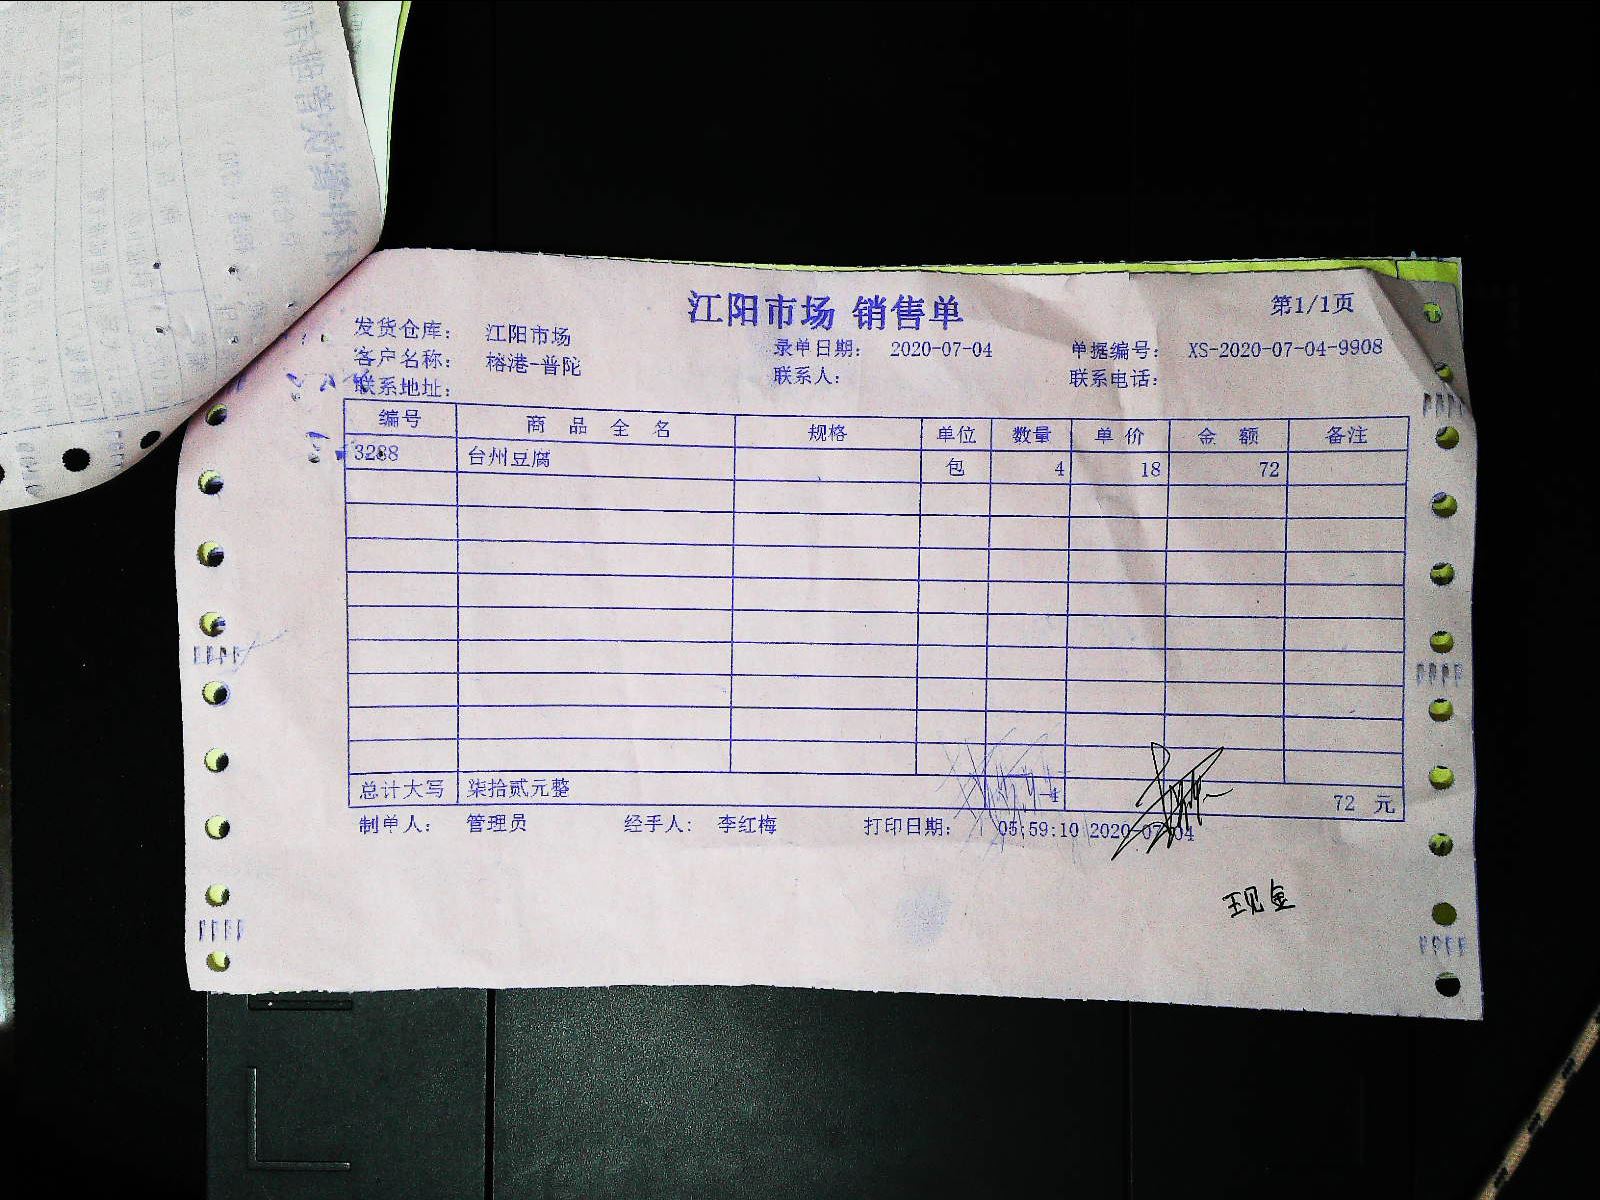 江阳市场 销售单
第1/1页
发货仓库: 江阳市场
录单日期: 2020-07-04 单据编号: XS-2020-07-04-9908
客户名称: 榕港-普陀 联系人: 联系电话:
联系地址:
编号 商品全名 规格 单位 数量 单价 金额 备注
3288 台州豆腐 包 4 18 72
总计大写 柒拾贰元整 72 元
制单人: 管理员 经手人: 李红梅 打印日期: 05:59:10 2020-07-04
现金